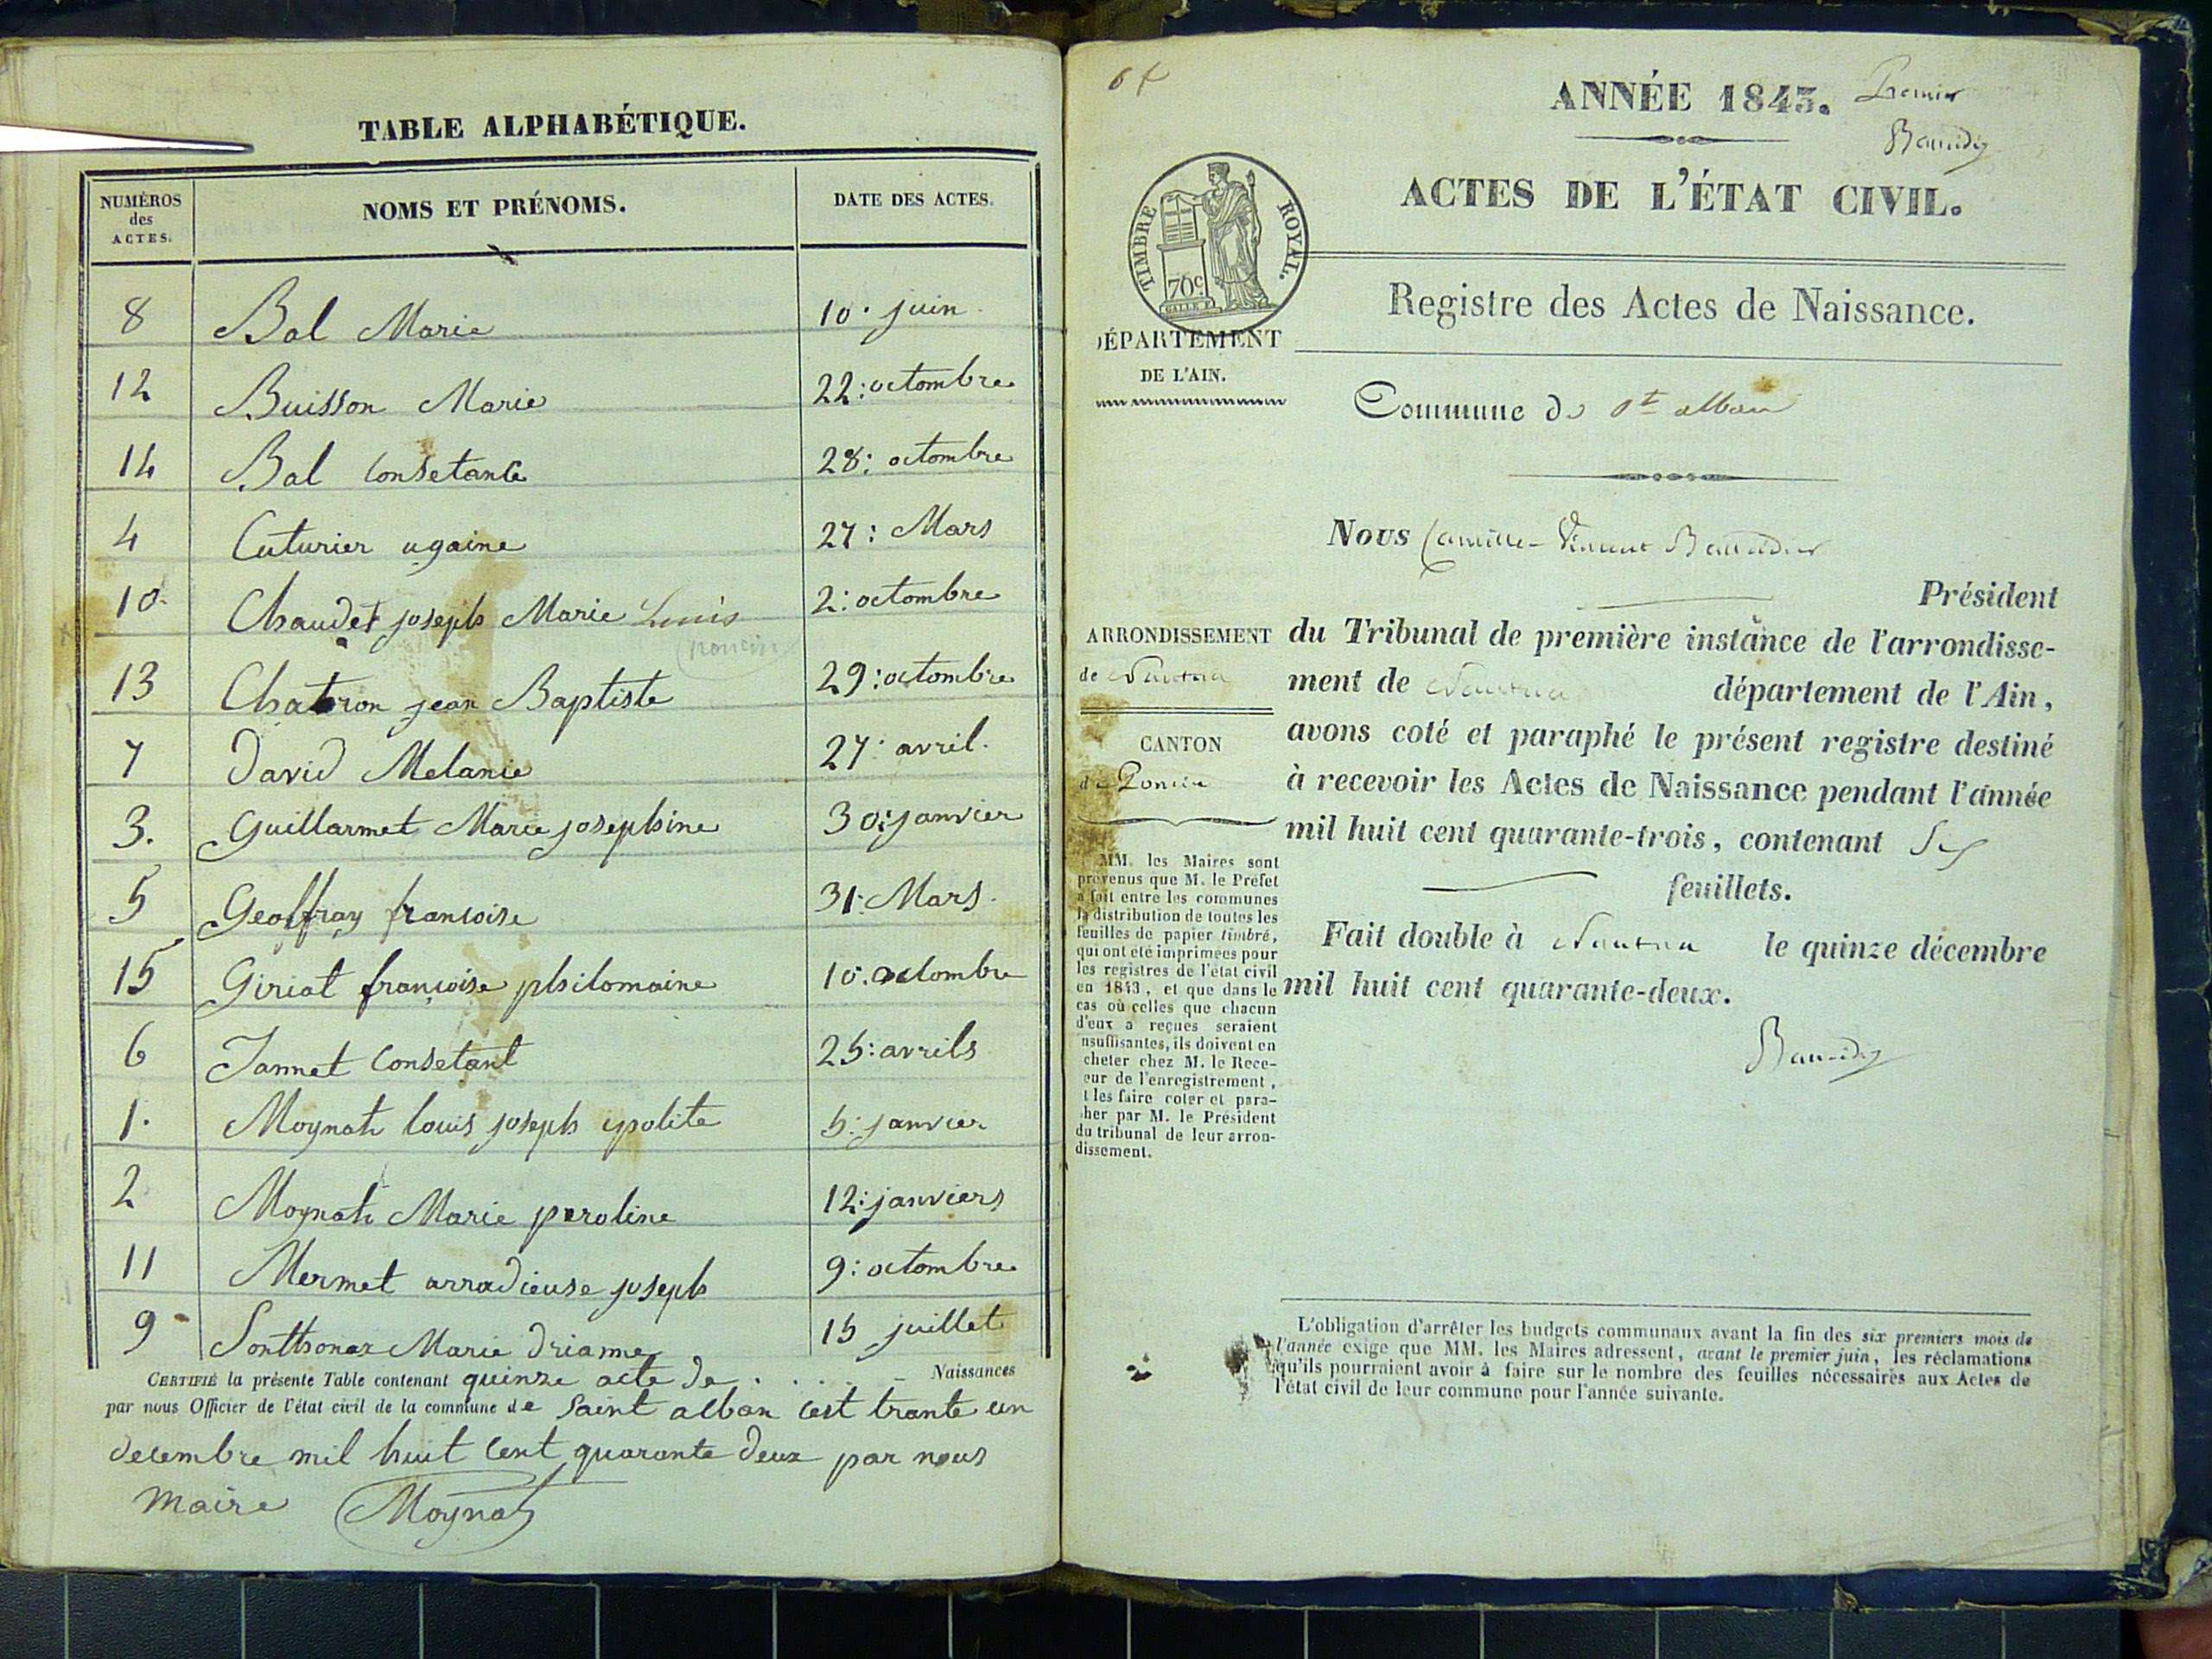 TABLE ALPHABÉTIQUE.
NUMÉROS des ACTES. NOMS ET PRÉNOMS. DATE DES ACTES.
8 Bal Marie 10. juin
12 Buisson Marie 22: octombre
14 Bal Consetance 28: octombre
4 Cuturier ugaine 27: Mars
10 Chaudet joseph Marie Louis 2: octombre
(poncin)
13 Chatron jean Baptiste 29: octombre
7 David Melanie 27: avril.
3. Guillarmet Marie josephine 30: janvier
5 Geoffray francoise 31: Mars.
15 Giriat françoise philomaine 10. octombre
6 Jannet Consetant 25: avrils
1. Moynat louis joseph ipolite 5: janvier
2 Moynat Marie peroline 12: janviers
11 Mermet arradieuse joseph 9: octombre
9 Sonthonax Marie drianne 15 juillet
CERTIFIÉ la présente Table contenant quinze acte de Naissances
par nous Officier de l'état civil de la commune de Saint alban cest trante un
decembre mil huit cent quarante deux par nous
maire Moynat
ANNÉE 1843. Premier
Baudier
ACTES DE L'ÉTAT CIVIL.
TIMBRE ROYAL.
70c
Registre des Actes de Naissance.
DÉPARTEMENT
DE L'AIN.
Commune de St alban
Nous Camille Vincent Baudier
Président
ARRONDISSEMENT
de Nantua
CANTON
de Poncin
du Tribunal de première instance de l'arrondisse-
ment de Nantua département de l'Ain,
avons coté et paraphé le présent registre destiné
à recevoir les Actes de Naissance pendant l'année
mil huit cent quarante-trois, contenant Six
feuillets.
Fait double à Nantua le quinze décembre
mil huit cent quarante-deux.
Baudier
MM. les Maires sont
prévenus que M. le Préfet
a fait entre les communes
la distribution de toutes les
feuilles de papier timbré,
qui ont été imprimées pour
les registres de l'état civil
en 1843, et que dans le
cas où celles que chacun
d'eux a reçues seraient
nsuffisantes, ils doivent en
cheter chez M. le Rece-
eur de l'enregistrement,
t les faire coter et para-
her par M. le Président
du tribunal de leur arron-
dissement.
L'obligation d'arrêter les budgets communaux avant la fin des six premiers mois de
l'année exige que MM. les Maires adressent, avant le premier juin, les réclamations
qu'ils pourraient avoir à faire sur le nombre des feuilles nécessaires aux Actes de
l'état civil de leur commune pour l'année suivante.